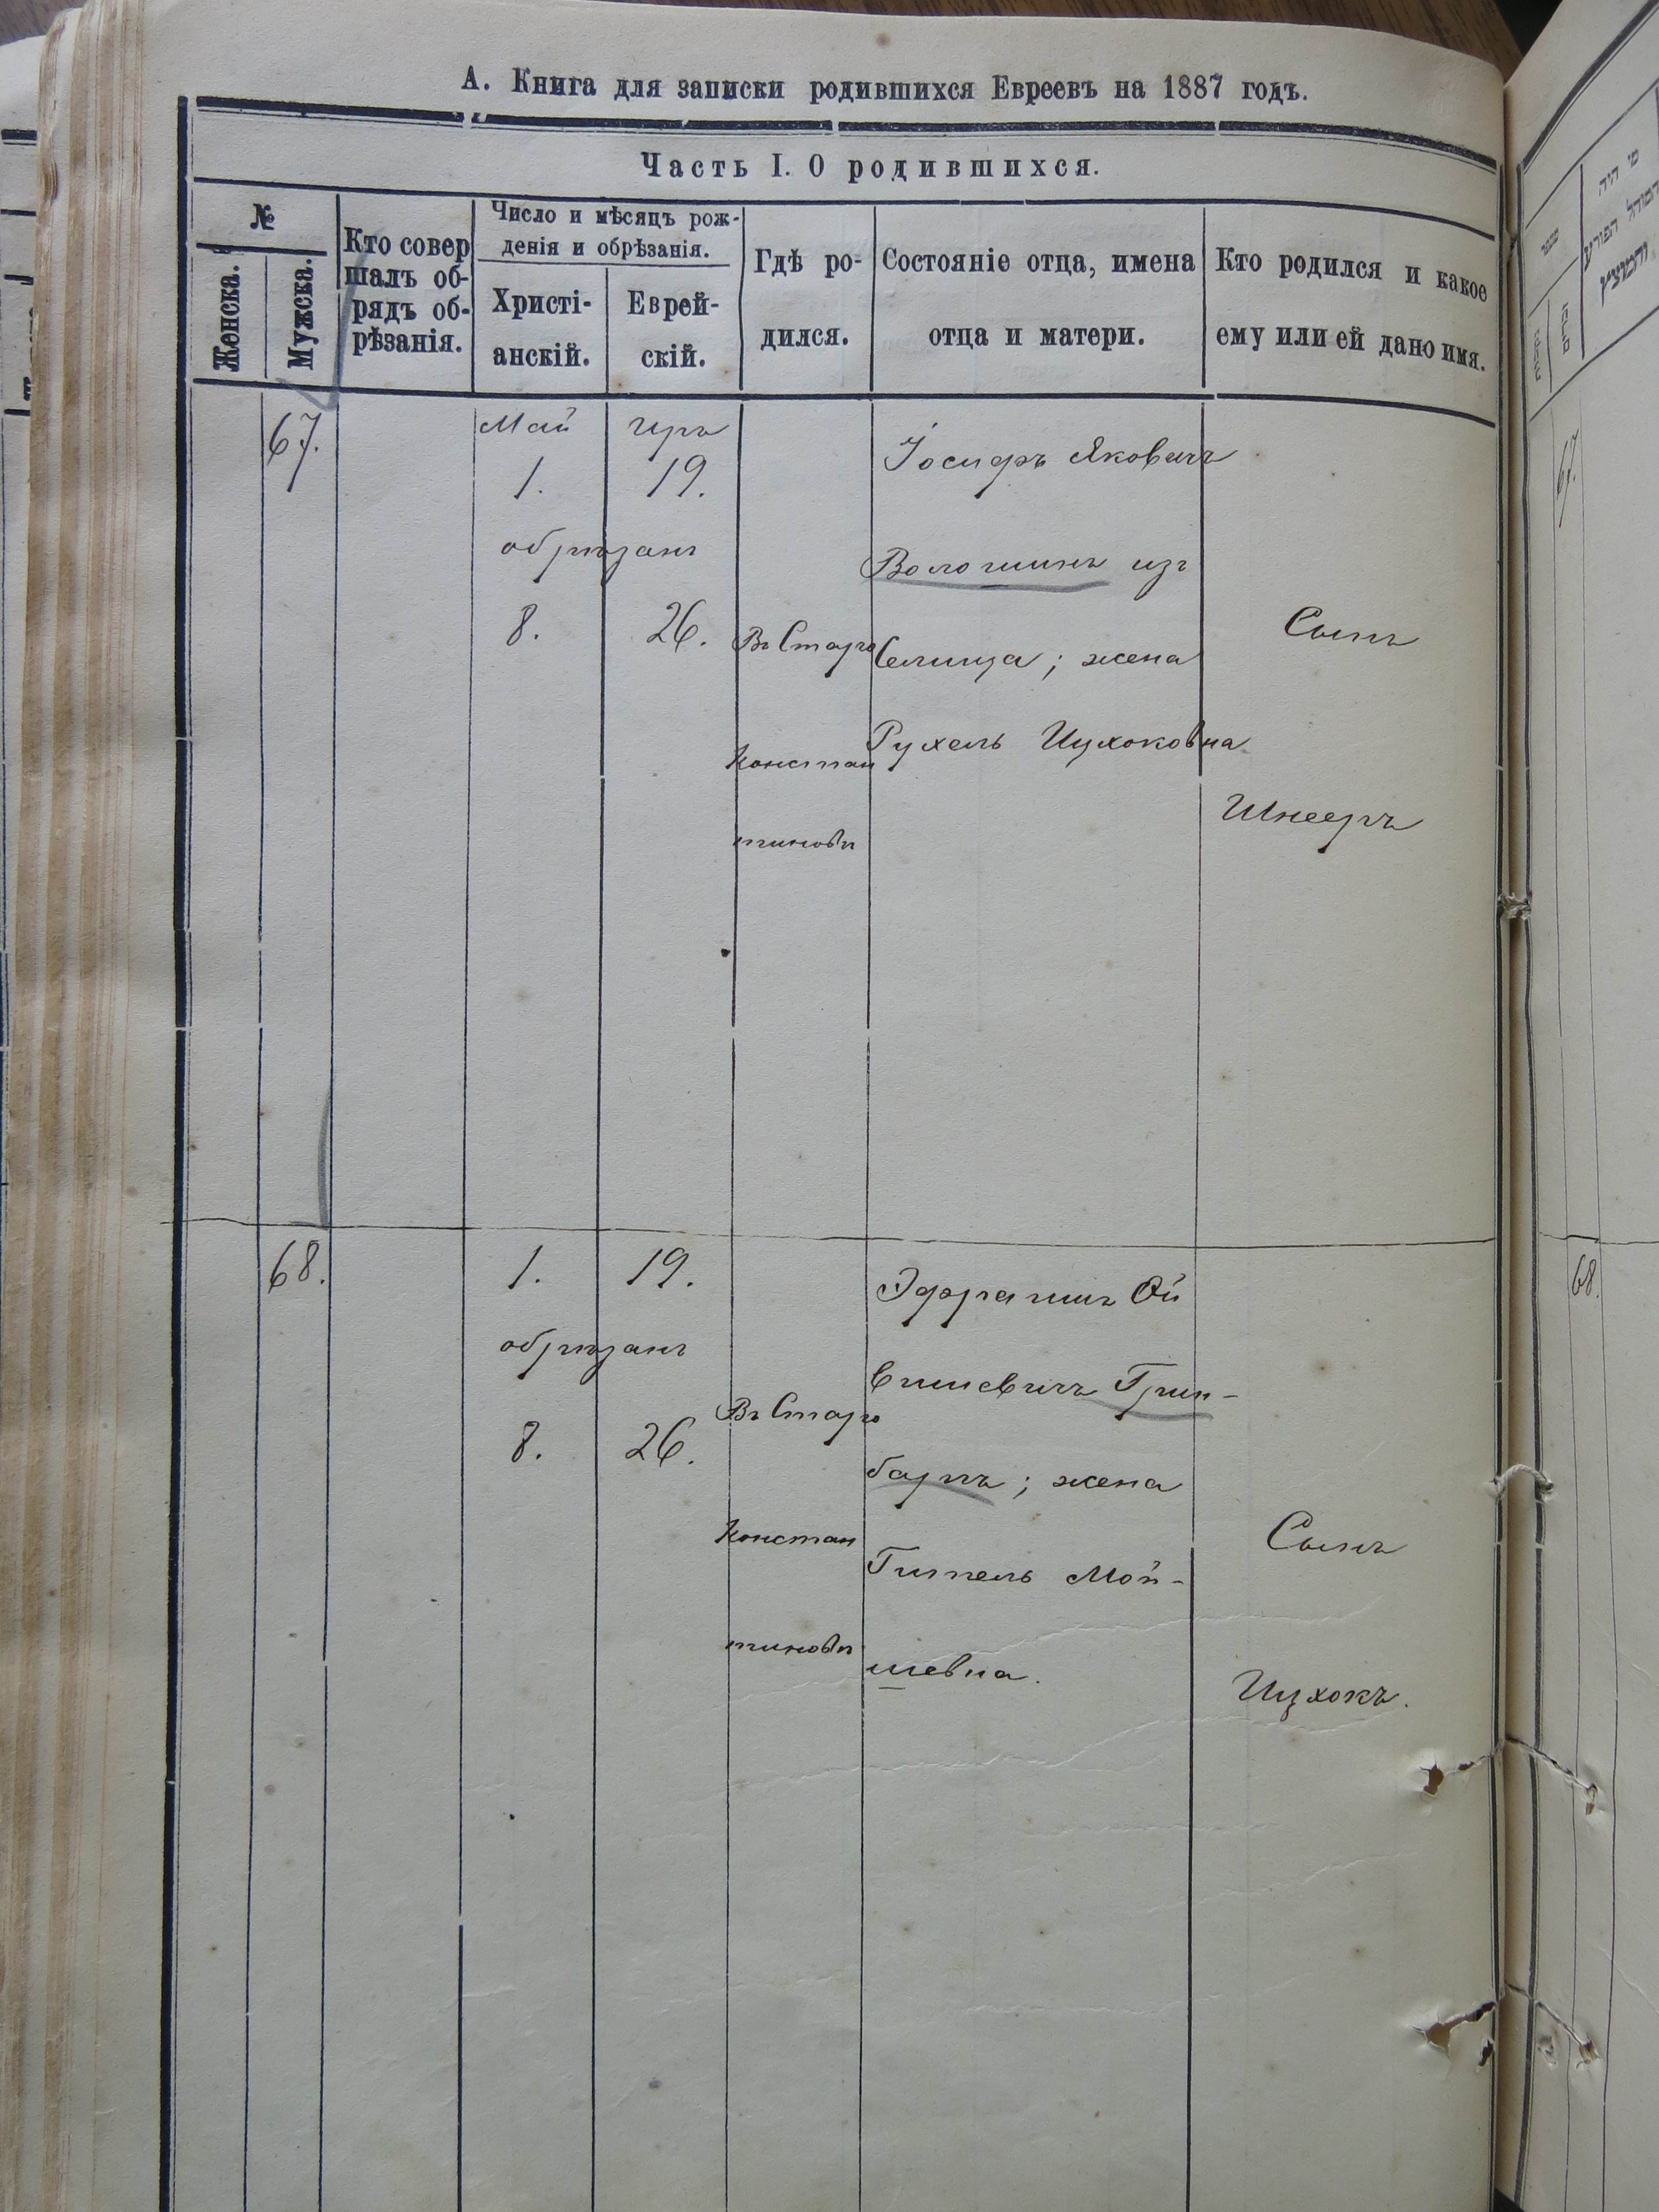 А. Книга для записки родившихся Евреевъ на 1887 годъ.
Часть I. О родившихся.
№
Женска.
Мужска.
Кто совер
шалъ об-
рядъ об-
рѣзанія.
Число и мѣсяцъ рож-
денія и обрѣзанія.
Христі-
анскій.
Еврей-
скій.
Гдѣ ро-
дился.
Состояніе отца, имена
отца и матери.
Кто родился и какое
ему или ей дано имя.
67.
Май
1.
Иръ
19.
обрѣзанъ
8.
26.
Въ Старо
Констан
тиновѣ
Іосифъ Яковичъ
Волошинъ изъ
Селища; жена
Рухель Ицхоковна
Сынъ
Шнееръ
68.
1.
19.
обрѣзанъ
8.
26.
Въ Старо
Констан
тиновѣ
Эфраимъ Ой
Грин-
баргъ; жена
Гитель Мой-
шевна.
Сынъ
Ицхокъ.
67.
68.